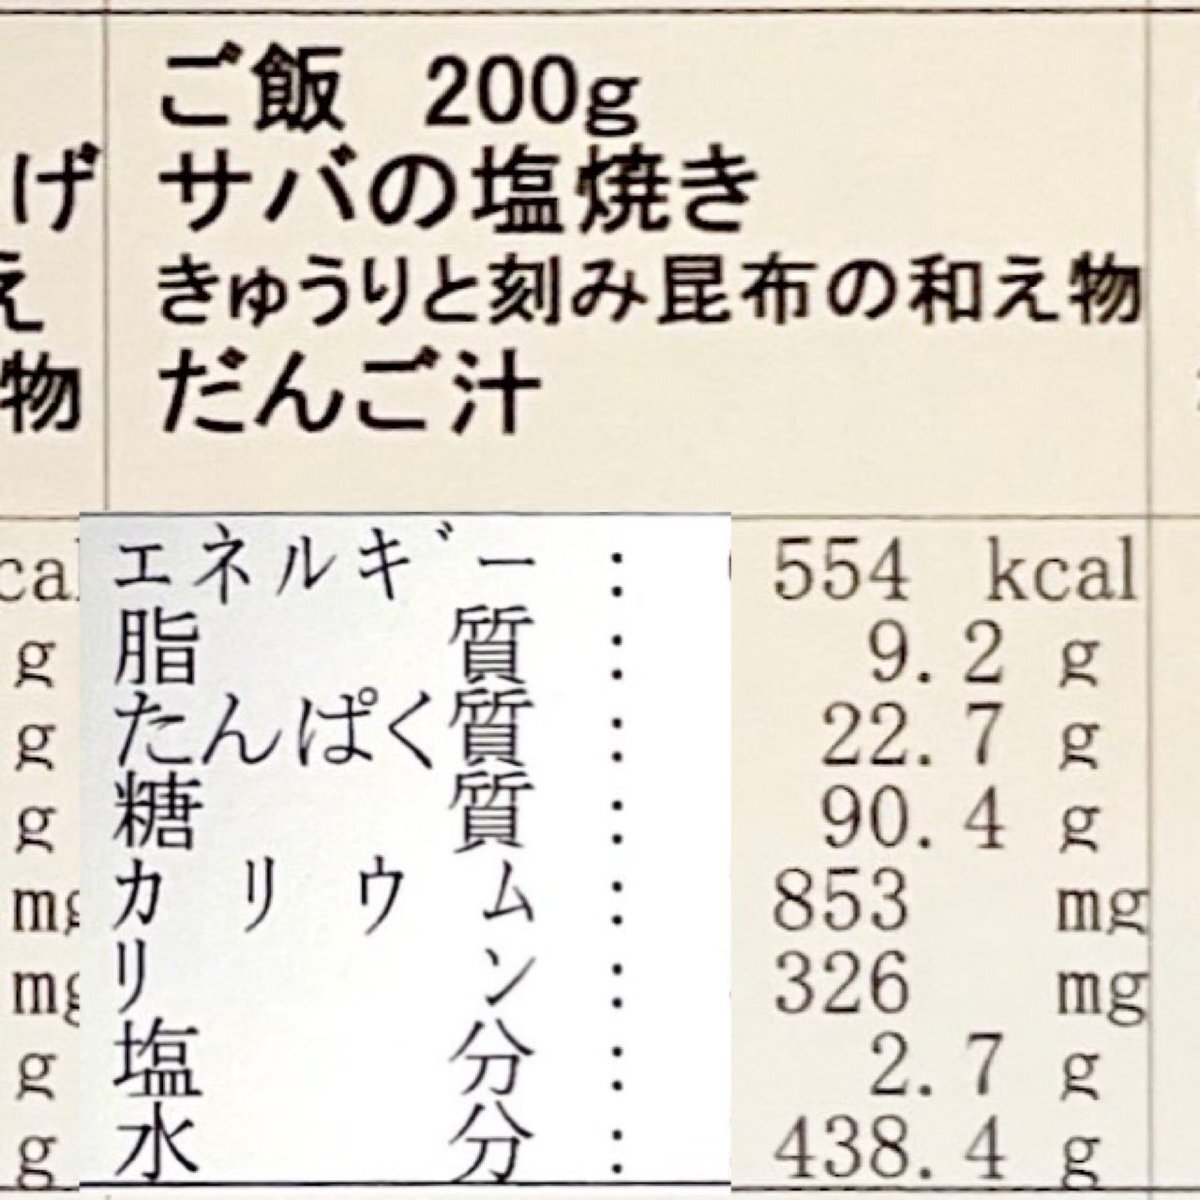 ご飯 200g
げ サバの塩焼き
え きゅうりと刻み昆布の和え物
物 だんご汁
cal エネルギー : 554 kcal
g 脂質 : 9.2 g
g たんぱく質 : 22.7 g
g 糖質 : 90.4 g
mg カリウム : 853 mg
mg リン : 326 mg
g 塩分 : 2.7 g
g 水分 : 438.4 g